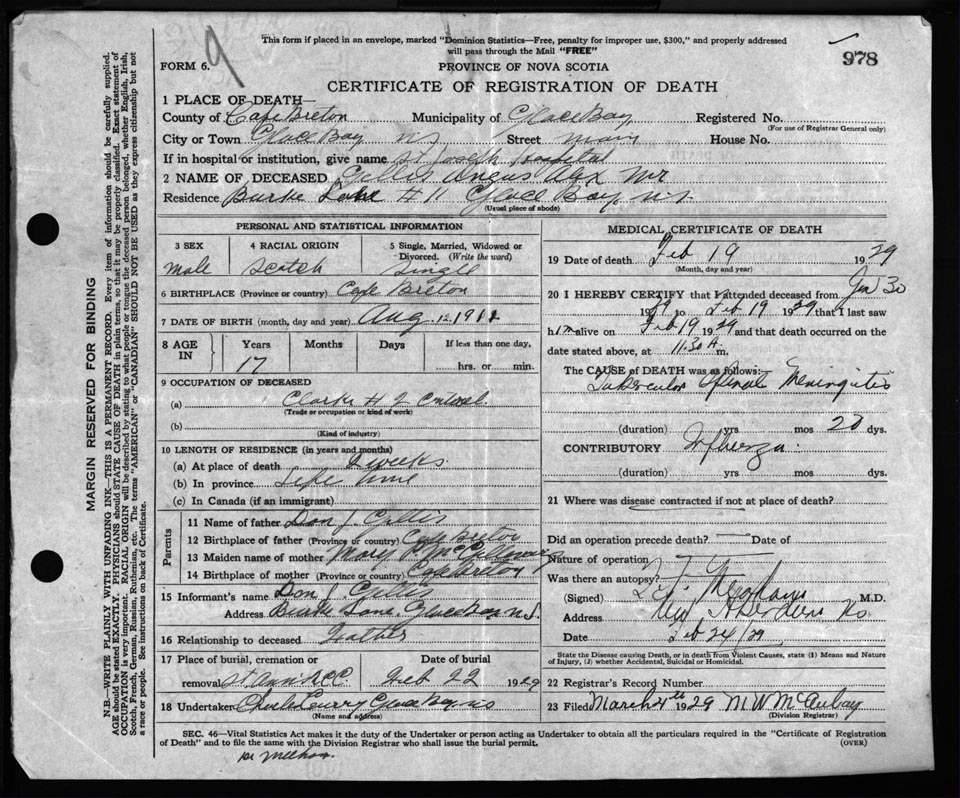 This form if placed in an envelope, marked "Dominion Statistics—Free, penalty for improper use, $300," and properly addressed
will pass through the Mail "FREE"
978
FORM 6.
9
PROVINCE OF NOVA SCOTIA
CERTIFICATE OF REGISTRATION OF DEATH
1 PLACE OF DEATH—
County of Cape Breton Municipality of Glace Bay Registered No.
(For use of Registrar General only)
City or Town Glace Bay NS Street Main House No.
If in hospital or institution, give name St Joseph Hospital
2 NAME OF DECEASED Gillis Angus Alex Mr
Residence Burke Lane #11 Glace Bay N.S.
(Usual place of abode)
PERSONAL AND STATISTICAL INFORMATION
3 SEX 4 RACIAL ORIGIN 5 Single, Married, Widowed or Divorced. (Write the word)
Male Scotch Single
6 BIRTHPLACE (Province or country) Cape Breton
7 DATE OF BIRTH (month, day and year) Aug. 12, 1911
8 AGE IN Years Months Days If less than one day,
17 hrs. or min.
9 OCCUPATION OF DECEASED
(a) Clarke
(Trade or occupation or kind of work)
(b)
(Kind of industry)
10 LENGTH OF RESIDENCE (in years and months)
(a) At place of death 2 weeks
(b) In province Life time
(c) In Canada (if an immigrant)
Parents
11 Name of father Don J. Gillis
12 Birthplace of father (Province or country) Cape Breton
13 Maiden name of mother Mary
14 Birthplace of mother (Province or country) Cape Breton
15 Informant's name Don J. Gillis
Address Burke Lane, Glace Bay N.S.
16 Relationship to deceased Father
17 Place of burial, cremation or Date of burial
removal St Anns RCC Feb 22 1929
18 Undertaker Charles Curry Glace Bay NS
(Name and address)
MEDICAL CERTIFICATE OF DEATH
19 Date of death Feb 19 1929
(Month, day and year)
20 I HEREBY CERTIFY that I attended deceased from Jan 30
1929 to Feb 19 1929 that I last saw
him alive on Feb 19 1929 and that death occurred on the
date stated above, at 11.30 A. m.
The CAUSE of DEATH was as follows:—
Tubercular Spinal Meningitis
(duration) yrs mos 20 dys.
CONTRIBUTORY Influenza
(duration) yrs mos dys.
21 Where was disease contracted if not at place of death?
Did an operation precede death? — Date of
Nature of operation
Was there an autopsy?
(Signed) M.D.
Address New Aberdeen NS
Date Feb 24/29
State the Disease causing Death, or in death from Violent Causes, state (1) Means and Nature
of Injury, (2) whether Accidental, Suicidal or Homicidal.
22 Registrar's Record Number
23 Filed March 1929 M W McAulay
(Division Registrar)
SEC. 46—Vital Statistics Act makes it duty of the Undertaker or person acting as Undertaker to obtain all the particulars required in the "Certificate of Registration
of Death" and to file the same with the Division Registrar who shall issue the burial permit.
(OVER)
Dr Meehan.
MARGIN RESERVED FOR BINDING
N.B.—WRITE PLAINLY WITH UNFADING INK—THIS IS A PERMANENT RECORD. Every item of information should be carefully supplied.
AGE should be stated EXACTLY. PHYSICIANS should STATE CAUSE OF DEATH in plain terms, so that it may be properly classified. Exact statement of
OCCUPATION is very important. RACIAL ORIGIN will be described by stating to what people or tongue the deceased person belonged, whether English, Irish,
Scotch, French, German, Russian, Ruthenian, etc. The terms "AMERICAN" or "CANADIAN" SHOULD NOT BE USED as they express citizenship but not
a race or people. See instructions on back of Certificate.